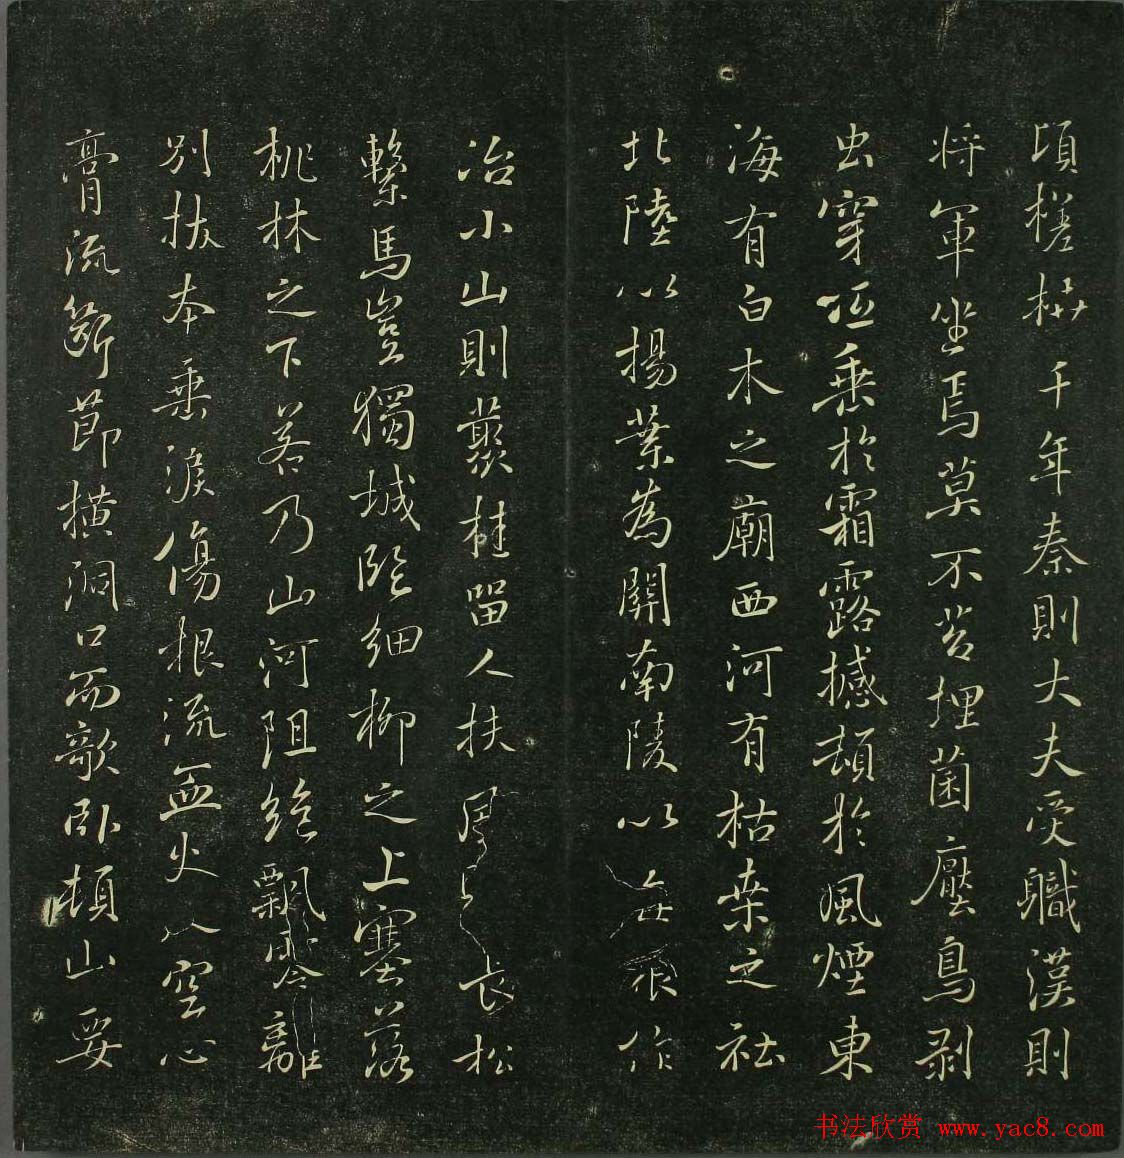 頃槎枿千年秦則大夫受職漢則
将軍坐焉莫不苔埋菌壓鳥剥
虫穿低垂於霜露撼頓於風煙東
海有白木之廟西河有枯桒之社
北陸以揚葉為關南陵以梅根作
冶小山則藂桂留人扶風則長松
繫馬豈獨城臨細柳之上塞落
桃林之下若乃山河阻絶飄零離
别拔本垂淚傷根流血火入空心
膏流斷節横洞口而欹卧頓山要
书法欣赏 www.yac8.com